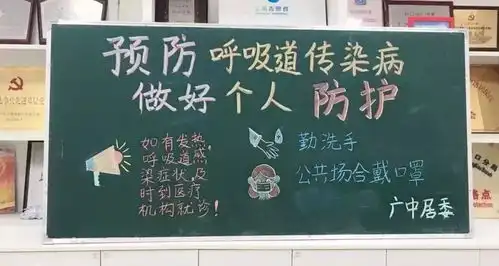 预防呼吸道传染病
做好个人防护
如有发热,
呼吸道感
染症状,及
时到医疗
机构就诊!
勤洗手
公共场合戴口罩
广中居委